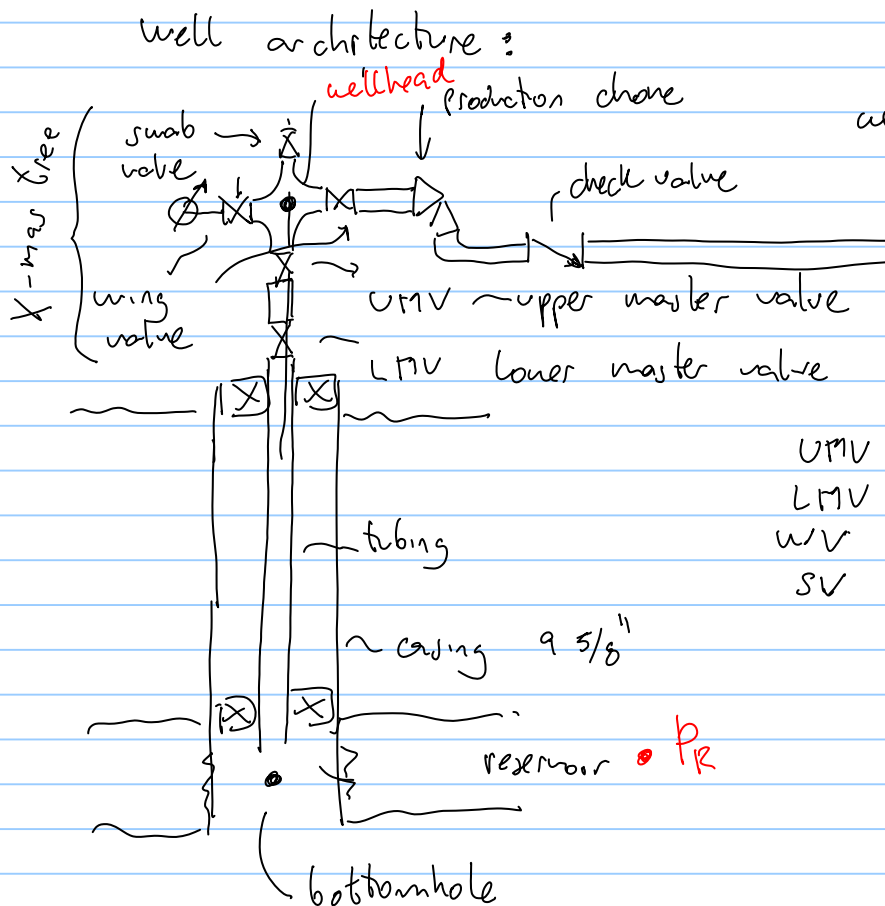 well architecture :
wellhead
production choke
swab
valve
X-mas tree
check valve
wing
valve
UMV ~upper master valve
LMV lower master valve
UMV
LMV
WV
SV
tubing
~ casing 9 5/8"
reservoir • PR
bottomhole